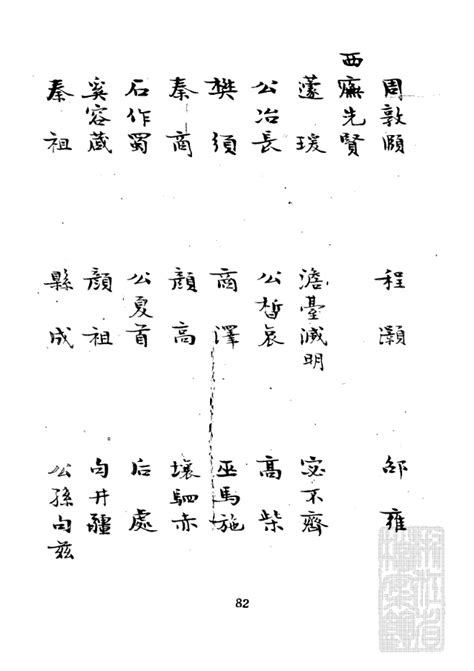 周敦頤　程灝　邵雍
西廡先賢
蘧瑗　澹臺滅明　宓不齊
公冶長　公晳哀　高柴
樊須　商澤　巫馬施
秦商　顏高　壤駟赤
石作蜀　公夏首　后處
奚容蒧　顏祖　句井疆
秦祖　縣成　公孫句茲
82